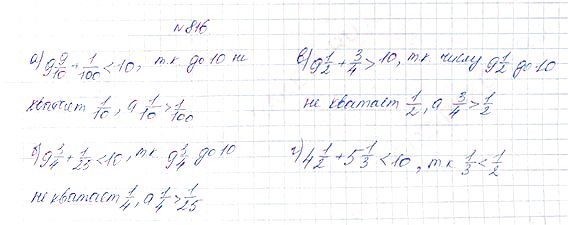 №816
а) 9 9/10 + 1/100 < 10, т.к. до 10 не
хватает 1/10, а 1/10 > 1/100
б) 9 3/4 + 1/25 < 10, т.к. 9 3/4 до 10
не хватает 1/4, а 1/4 > 1/25
в) 9 1/2 + 3/4 > 10, т.к. числу 9 1/2 до 10
не хватает 1/2, а 3/4 > 1/2
г) 4 1/2 + 5 1/3 < 10, т.к 1/3 < 1/2